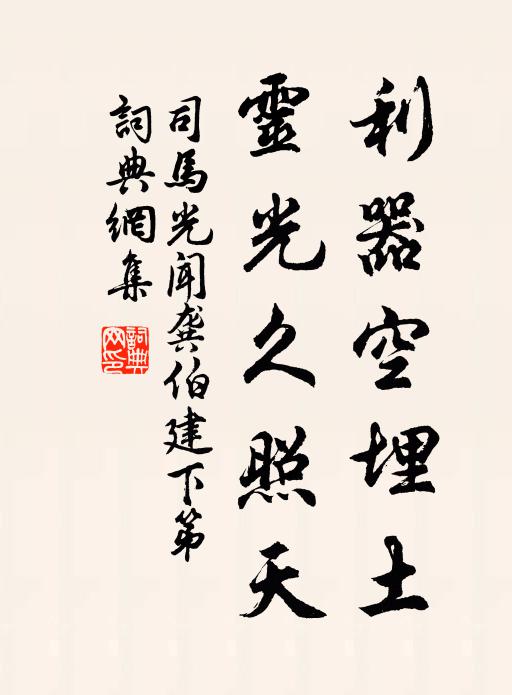 利器空埋土
靈光久照天
司馬光聞龔伯建下第
詞典網集
詞典网印